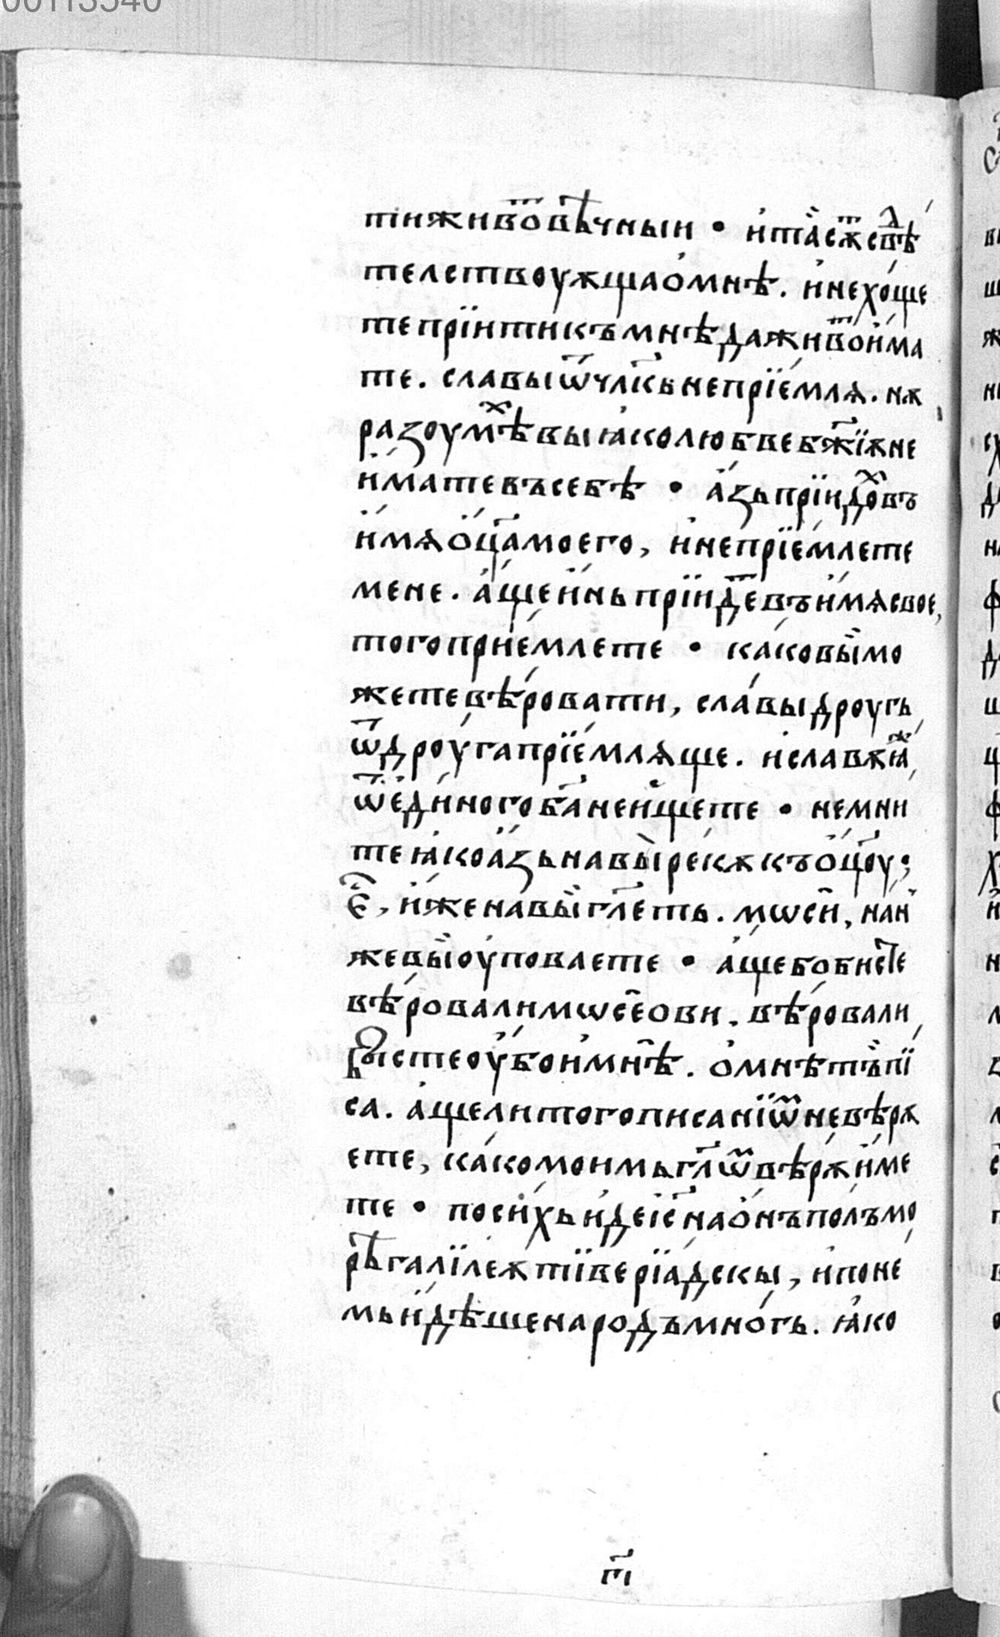 00113540
тїи живѡ вѣчныи • и҆ та̀ сѫ свѣдѣ
телствоуѫщаа ѡ҆ мнѣ . и҆ не хо́ще
те прїити къ мнѣ да живо́ и҆ма
те . славы ѿ чл҃кь не прїе́млѧ . нѫ
разоумѣ́х вы ꙗ҆ко любве бж҃їѫ не
и҆мате въ себѣ • а҆́зь прїидо́х въ
и҆́мѧ ѻ҆ц҃а моего , и҆ не прїе́млете
мене . а҆́ще и҆́нь прїиде́т въ и҆́мѧ свое ,
того прие́млете • како вы̀ мо
жете вѣ́ровати , сла́вы дроугь
ѿ дроу́га прїе́млѧще . и҆ славѫ ꙗ҆́ж
ѿ е҆ди́ного ба҃ не и҆́щете • не мни
те ꙗ҆ко а҆́зь на вы̀ рекѫ къ ѻ҆ц҃оу ;
є҆ст , и҆́же на вы̀ гл҃еть . мѡѵсїи , на н
же вы̀ оу҆повaете • а҆́ще бо бисте
вѣ́ровали мѡсеѡви . вѣ́ровали
бысте оу҆́бо и҆ мнѣ̀ . ѡ҆ мнѣ тъ̀ пї
са . а҆́ще ли того писанїѡм не вѣ́рѫ
ете , ка́ко моимь гл҃ѡм вѣ́рѫ и҆́ме
те • по си́хь и҆́де іс҃ на ѻ҆́нъ полъ мо
рѣ̀ галїлеѫ тїверїа́дскы , и҆ по не
мь и҆дѣ́ше народъ мно́гь . ꙗ҆ко
гі҃